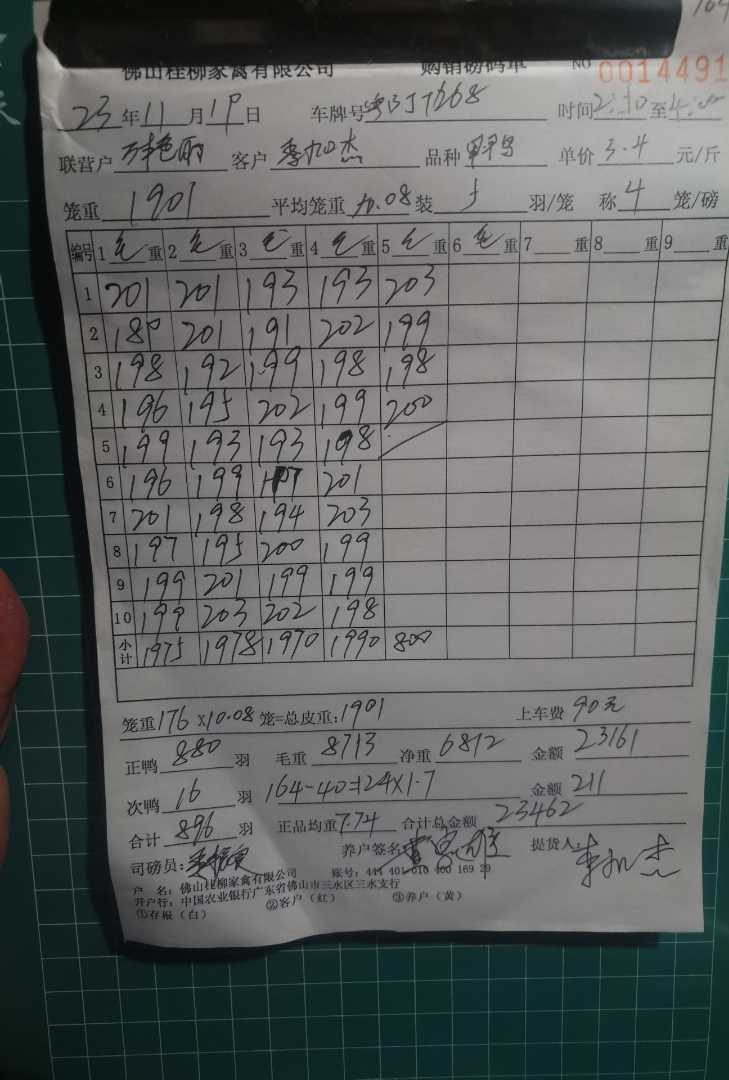 佛山桂柳家禽有限公司 购销磅码单 NO 0014491
23年11月19日 车牌号 时间 至
联营户 客户 品种 单价3.4元/斤
笼重1901 平均笼重10.08 装5羽/笼 称4笼/磅
编号 1毛重 2毛重 3毛重 4毛重 5毛重 6毛重 7重 8重 9重
1 201 201 193 193 203
2 189 201 191 202 199
3 198 192 199 198 198
4 196 195 202 199 200
5 199 193 193 198
6 196 199 201
7 201 198 194 203
8 197 195 200 199
9 199 201 199 199
10 199 203 202 198
小计 1975 1978 1970 1990 800
笼重176×10.08笼=总皮重:1901 上车费90元
正鸭880羽 毛重8713 净重6812 金额23161
次鸭16羽 164-40=124×1.7 金额211
合计896羽 正品均重7.74 合计总金额23462
司磅员: 养户签名: 提货人:
户 名:佛山桂柳家禽有限公司 账号:441 401 010 400 169 29
开户行:中国农业银行广东省佛山市三水区三水支行
①存根(白) ②客户(红) ③养户(黄)